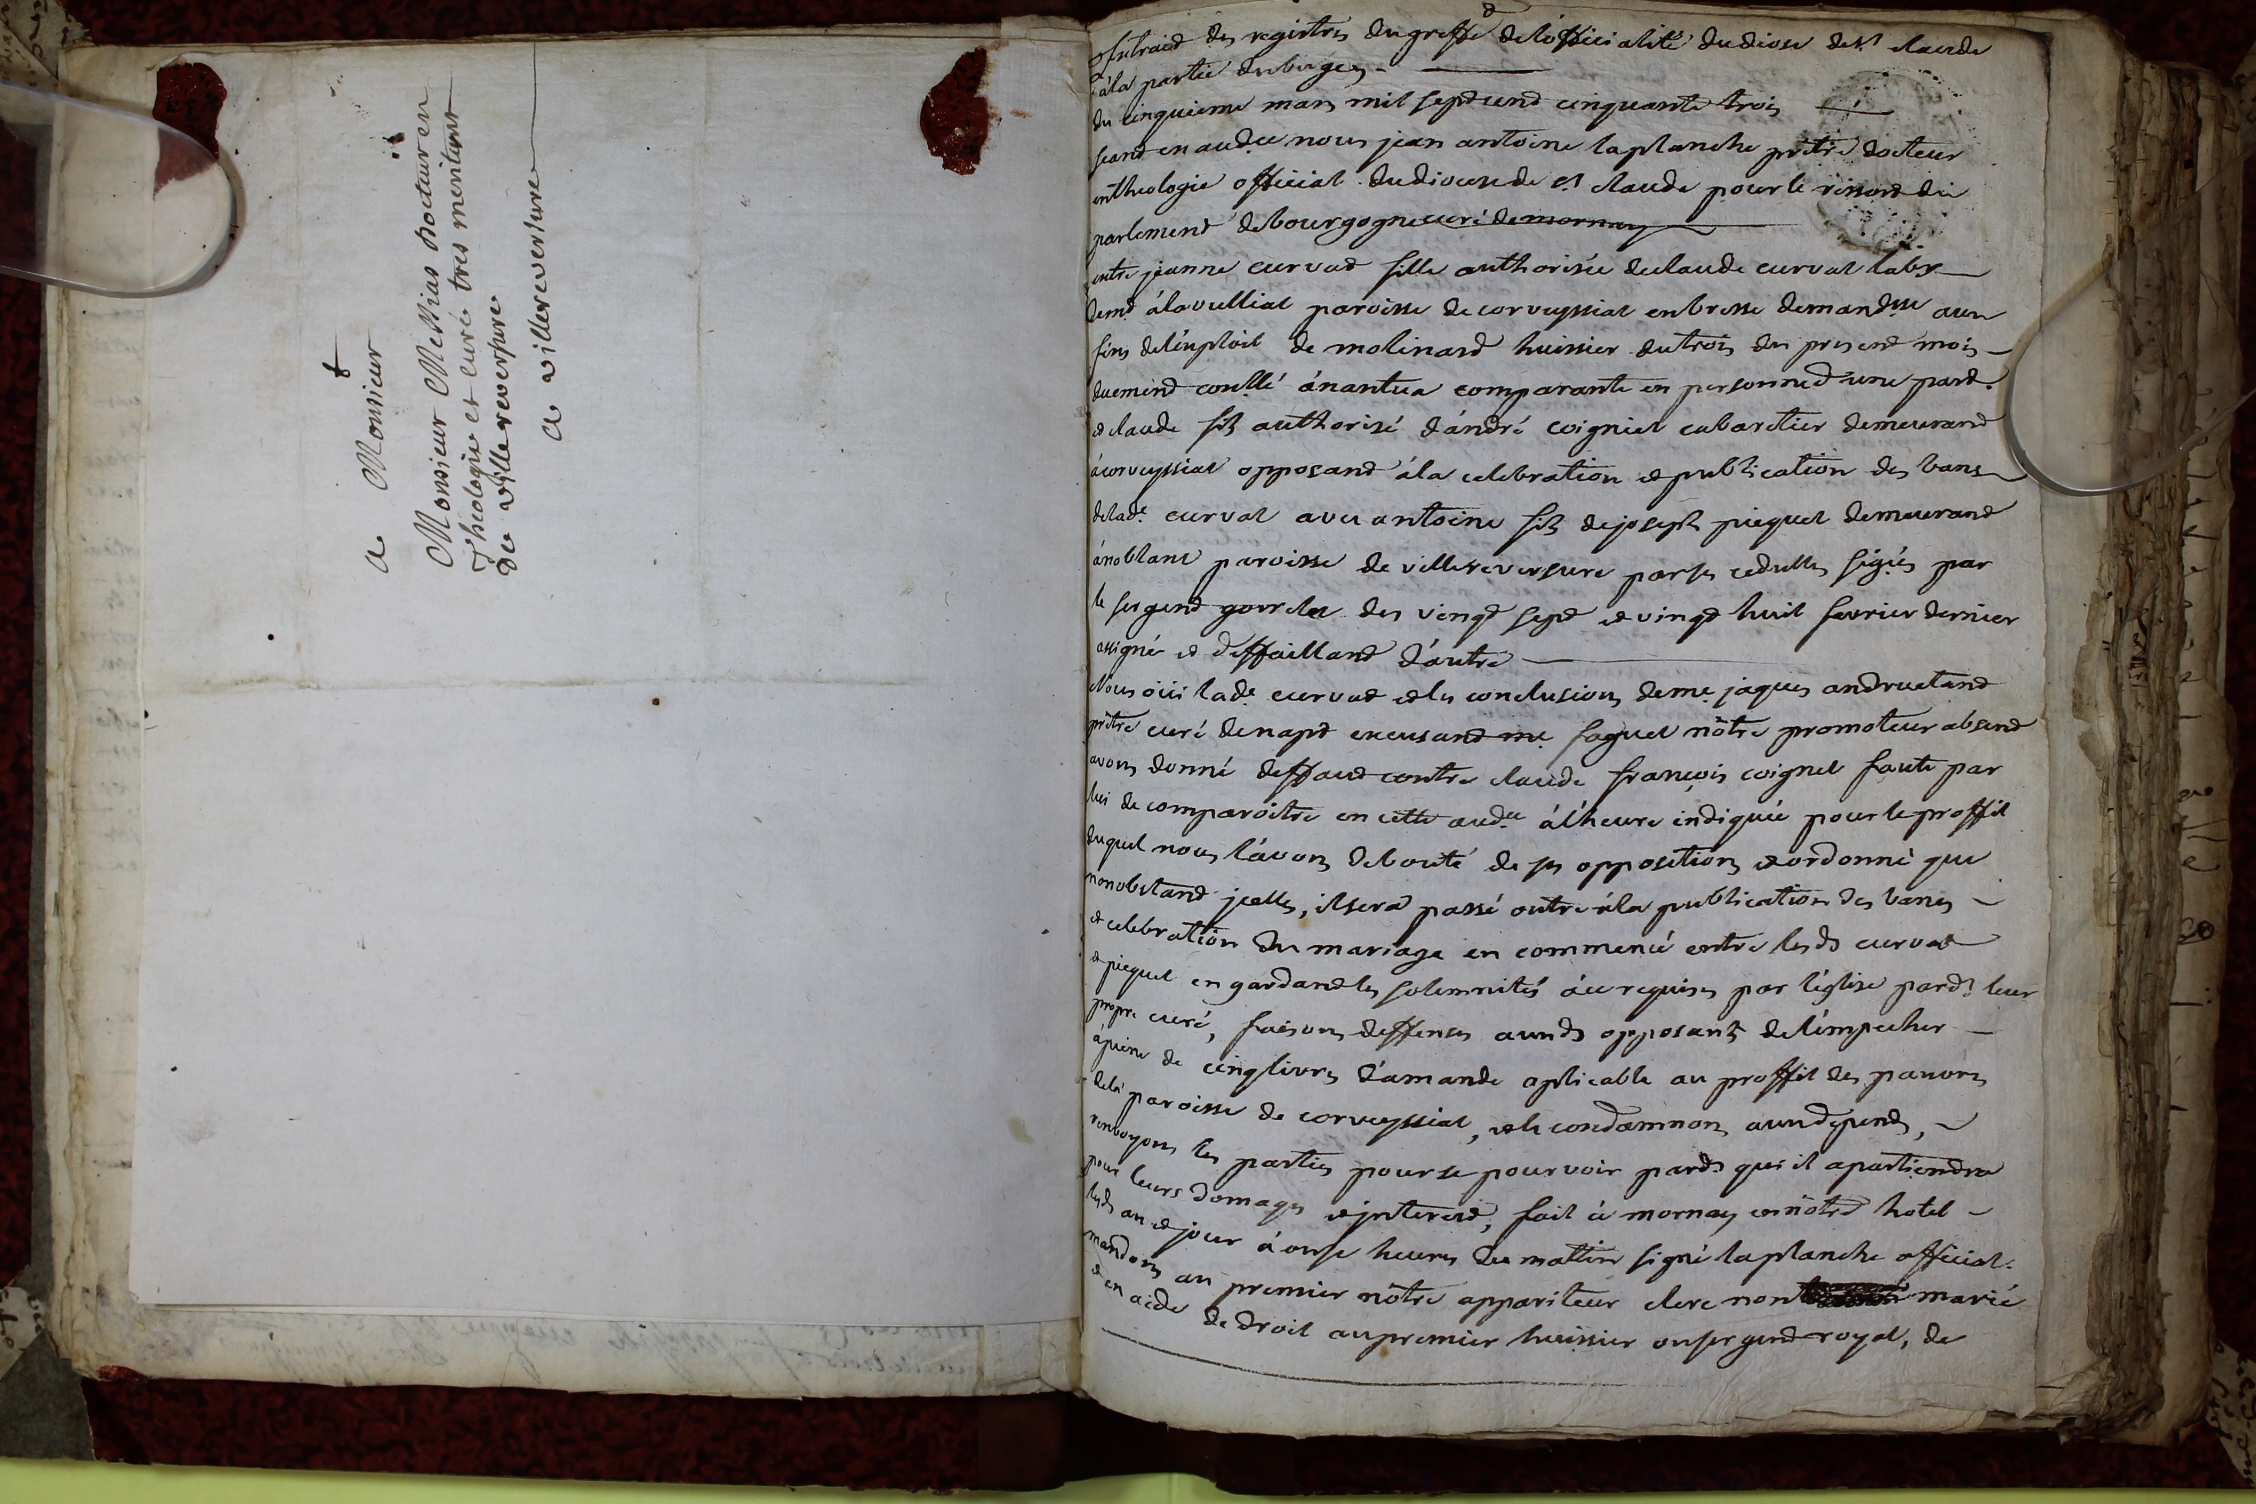 a Monsieur
Monsieur Messias Docteur en
Theologie et curé tres meritant
de villereversure
a villereversure
extraid des registres du greffe de l'officialité du diose de st claude
à la partie du bugey
du cinquieme mars mil septcend cinquante trois
seand en audce nous jean antoine laplanche prêtre docteur
en theologie official du diocese de st claude pour le ressord du
parlemend de bourgogne curé de mornay
entre jeanne curvad fille authorisée de claude curvat labr
demt à la vulliat paroisse de corveyssiat en bresse demandsse aux
fins de l'exploit de molinard huissier du trois du presend mois
duemend conllé à nantua comparante en personne d'une pard.
et claude fils authorisé d'andré coigniet cabaretier demeurand
à corveyssiat opposand à la celebration et publication des bans
de lade curvat avec antoine fils de joseph piequet demeurand
à noblant paroisse de villereversure par ses cedulles sigés par
le sergend gourlet des vingt sept et vingt huit fevrier dernier
assigné et deffailland d'autre
Nous oüi lade curvad et les conclusions de me jaques andruetand
prêtre curé de napt excusand me faguet nôtre promoteur absend
avons donné deffaud contre claude françois coignet faute par
lui de comparoître en cette audce à l'heure indiquée pour le proffit
duquel nous l'avons debouté de ses oppositions et ordonné que
nonobstand jcelles, il sera passé outre à la publication des bans
et celebration du mariage en commencé entre lesds curvat
et piequet en gardand les solemnités à ce requises par l'église pards leur
propre curé, faisons deffenses auxds opposants de l'empecher
à peine de cinq livres d'amande aplicable au proffit des pauvres
de la paroisse de corveyssiat, et le condamnons aux depends,
renvoyons les parties pour se pourvoir pards qui il apartiendra
pour leurs domages et jnterest, fait à mornay en nôtre hotel
lesds an et jour à onse heures du mattin signé laplanche official.
mandons au premier nôtre appariteur clerc non marié
et en aide de droit au premier huissier ou sergend royal, de